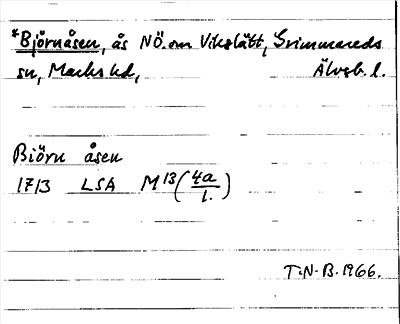 *Björnåsen, ås NÖ. om Vikslätt, Grimmareds
sn, Marks hd, Älvsb. l.
Biörn åsen
1713 LSA M13 (4a/1.)
T:N-B. 1966.